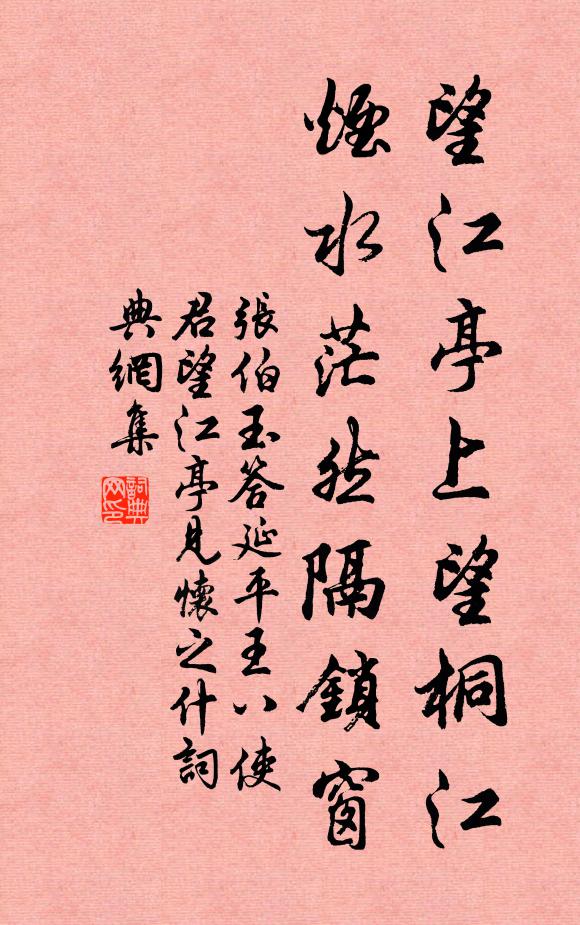 望江亭上望桐江
煙水茫然隔鎖窗
張伯玉答延平王八使
君望江亭見懷之什詞
典網集
詞典網印